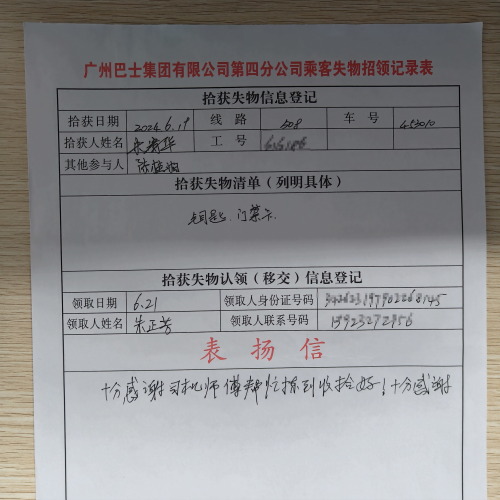 广州巴士集团有限公司第四分公司乘客失物招领记录表
拾获失物信息登记
拾获日期 2024.6.19 线路 508 车号 453010
拾获人姓名 工号
其他参与人
拾获失物清单（列明具体）
钥匙、门禁卡
拾获失物认领（移交）信息登记
领取日期 6.21 领取人身份证号码
领取人姓名 朱正芳 领取人联系号码 13923272956
表扬信
十分感谢司机师傅帮忙捡到收拾好！十分感谢